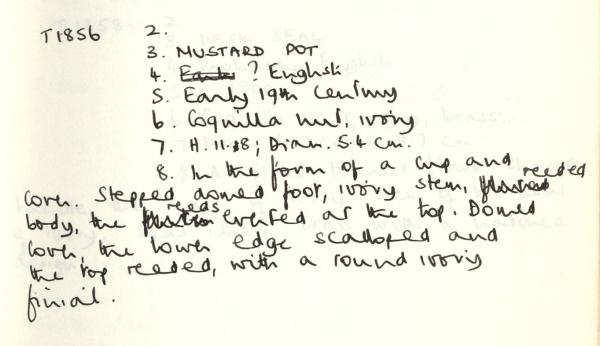 T1856 2.
3. MUSTARD POT
4. ? English
5. Early 19th century
6. Coquilla nut, ivory
7. H. 11.8; Diam. 5.4 cm.
8. In the form of a cup and
cover. Stepped domed foot, ivory stem, reeded
body, the reeds everted at the top. Domed
cover, the lower edge scalloped and
the top reeded, with a round ivory
finial.